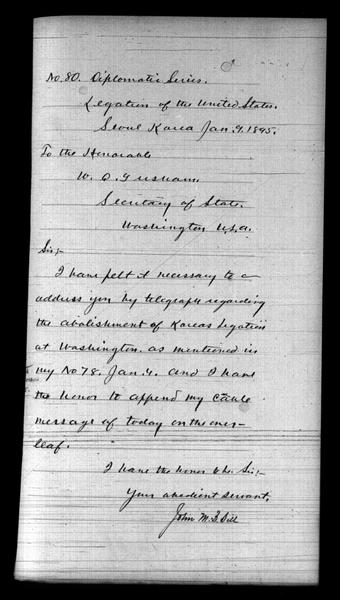 No. 80. Diplomatic Series.
Legation of the United States.
Seoul Korea Jan. 9. 1895.
To the Honorable
W. Q. Gresham.
Secretary of State.
Washington U.S.A.
Sir;-
I have felt it necessary to a
address you by telegraph regarding
the abolishment of Koreas Legation
at Washington. as mentioned in
my No 78. Jan. 4. and I have
the honor to append my cable
message of today on the over-
leaf.
I have the honor to be. Sir;-
Your obedient servant,
John M. B. Sill